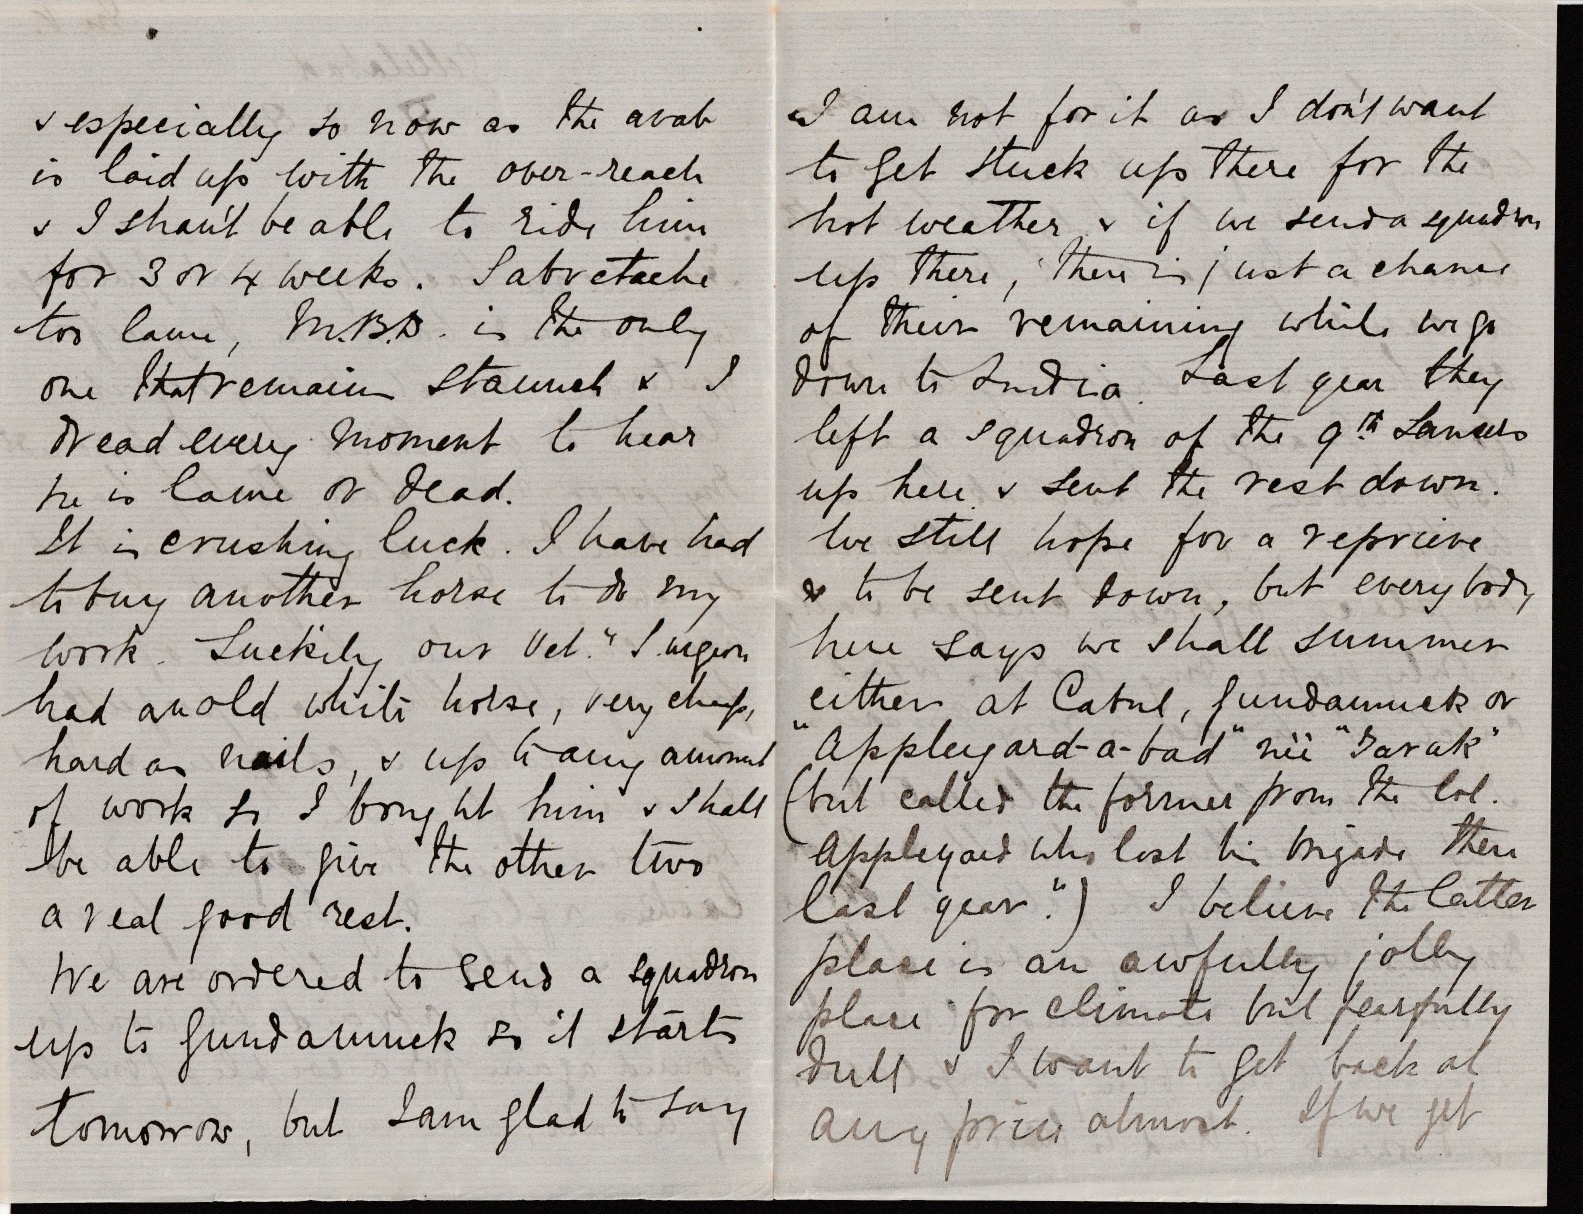 & especially so now as the arab
is laid up with the over-reach
& I shan't be able to ride him
for 3 or 4 weeks. Sabretache
too lame, M.B.D. is the only
one that remains staunch & I
dread every moment to hear
he is lame or dead.
It is crushing luck. I have had
to buy another horse to do my
work. Luckily our Vet." Surgeon
had an old white horse, very cheap,
hard as nails, & up to any amount
of work so I bought him & shall
be able to give the other two
a real good rest.
We are ordered to send a squadron
up to Gundamuck so it starts
tomorrow, but I am glad to say
I am not for it as I don't want
to get stuck up there for the
hot weather & if we send a squadron
up there, there is just a chance
of their remaining while we go
down to India. Last year they
left a squadron of the 9th Lancers
up here & sent the rest down.
We still hope for a reprieve
& to be sent down, but everybody
here says we shall summer
either at Cabul, Gundamuck or
"Appleyard-a-bad" née "Barak"
(but called the former from the Col.
Appleyard who lost his brigade there
last year".) I believe the latter
place is an awfully jolly
place for climate but fearfully
dull & I want to get back at
any price almost. If we get